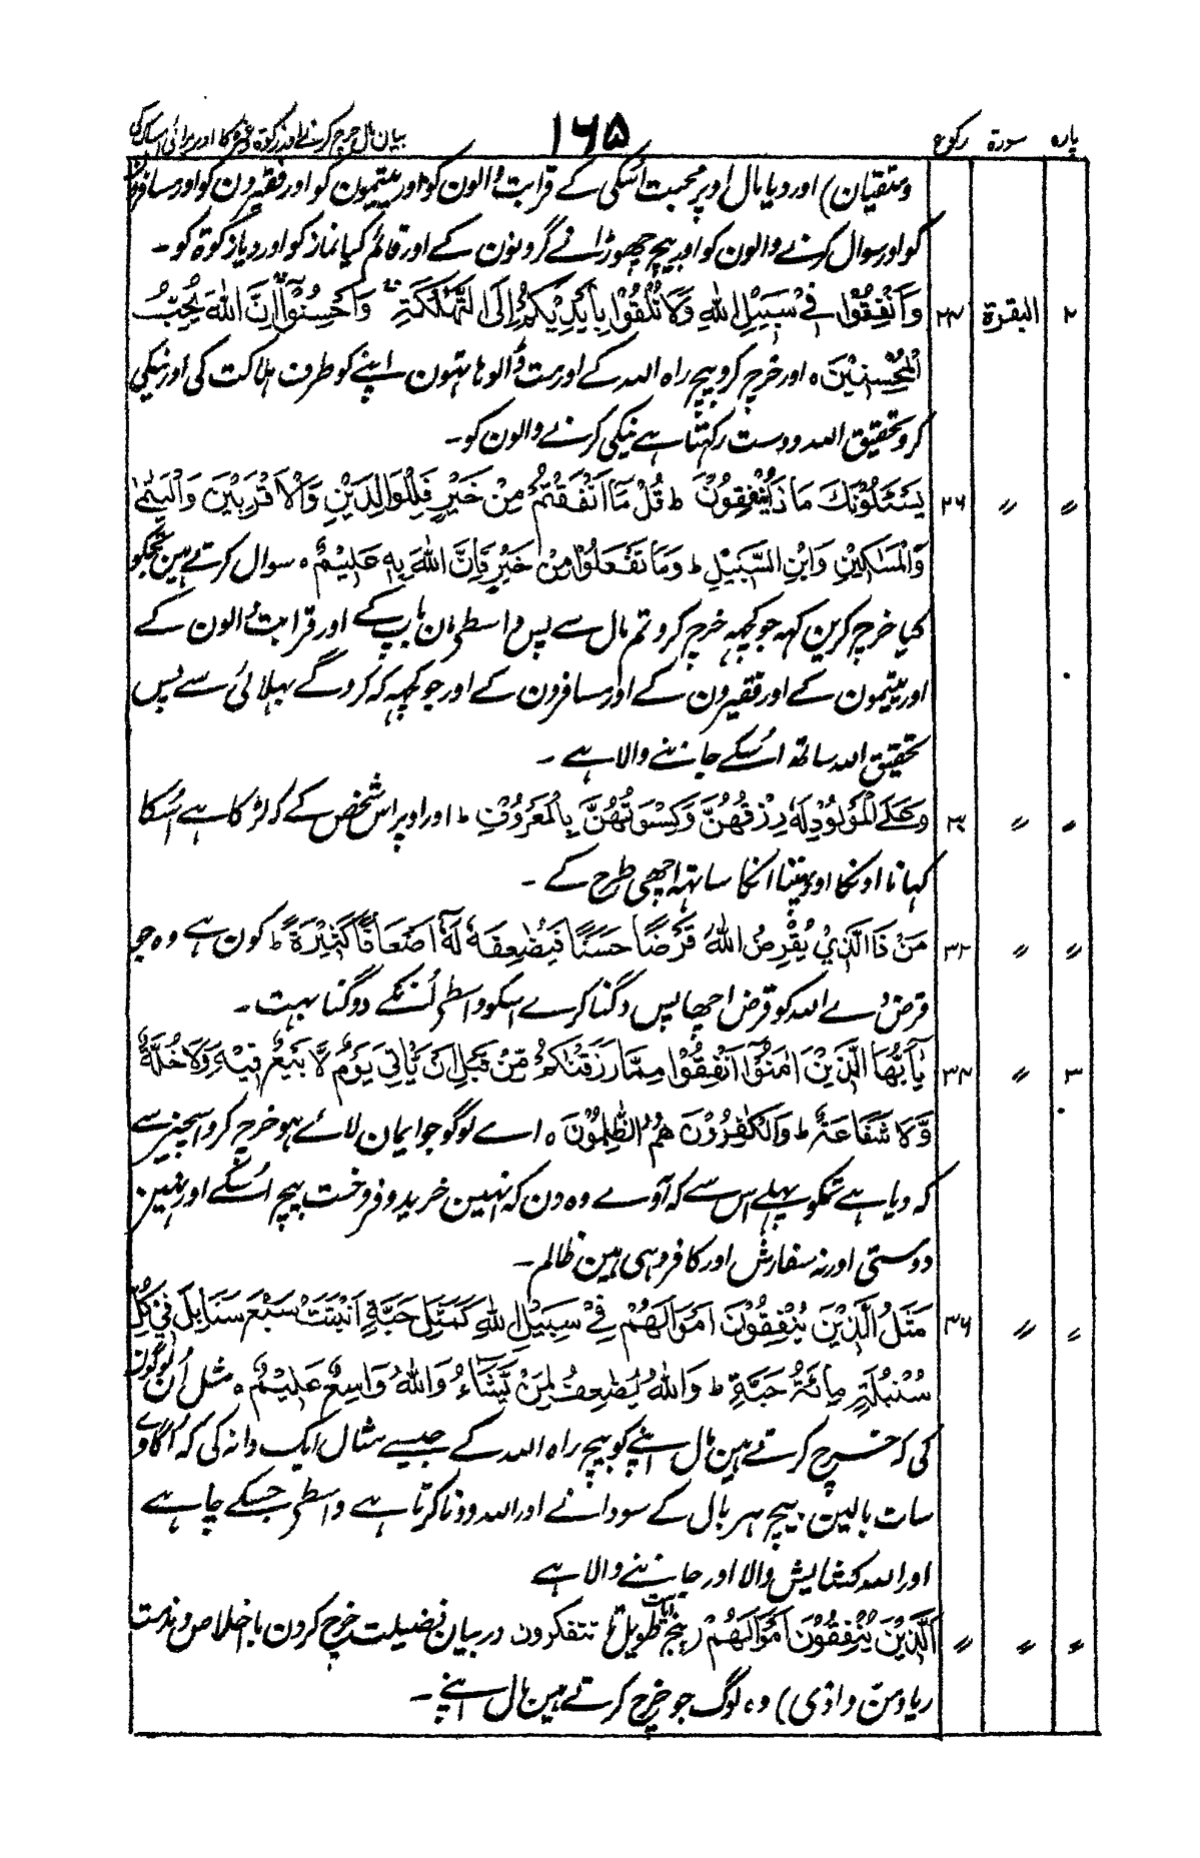 پارہ سورۃ رکوع ۱۶۵ بیان مال خرچ کرنے اور زکوۃ وغیرہ کا اور برائی اساک کی
ومتقیان) اور دیا مال اوپر محبت اسکی کے قرابت والون کو اور یتیمون کو اور فقیرون کو اور مسافرون
کو اور سوال کرنے والون کو اور بیچ چھوڑانے گردنون کے اور قائم کیا نماز کو اور دیا زکوۃ کو۔
۲ البقرۃ ۲۴ وَاَنْفِقُوْا فِیْ سَبِیْلِ اللّٰهِ وَلَا تُلْقُوْا بِاَیْدِیْکُمْ اِلَی التَّهْلُکَةِ وَاَحْسِنُوْا اِنَّ اللّٰهَ یُحِبُّ
الْمُحْسِنِیْنَ ہ اور خرچ کرو بیچ راہ اللہ کے اور مت ڈالو ہاتھون اپنے کو طرف ہلاکت کی اور نیکی
کرو تحقیق اللہ دوست رکھتا ہے نیکی کرنے والون کو۔
〃 〃 ۲۶ یَسْئَلُوْنَكَ مَاذَا یُنْفِقُوْنَ ط قُلْ مَا اَنْفَقْتُمْ مِنْ خَیْرٍ فَلِلْوَالِدَیْنِ وَالْاَقْرَبِیْنَ وَالْیَتٰمٰی
وَالْمَسٰکِیْنِ وَابْنِ السَّبِیْلِ ط وَمَا تَفْعَلُوْا مِنْ خَیْرٍ فَاِنَّ اللّٰهَ بِهٖ عَلِیْمٌ ہ سوال کرتے ہین تجکو
کیا خرچ کرین کہہ جو کچھہ خرچ کرو تم مال سے پس واسطے مان باپ کے اور قرابت والون کے
اور یتیمون کے اور فقیرون کے اور مسافرون کے اور جو کچھہ کہ کروگے بھلائی سے پس
تحقیق اللہ ساتھ اُسکے جاننے والا ہے۔
〃 〃 ۳۰ وَعَلَی الْمَوْلُوْدِ لَهٗ رِزْقُهُنَّ وَکِسْوَتُهُنَّ بِالْمَعْرُوْفِ ط اور اوپر اس شخص کے کہ لڑکا ہے اُسکا
کہانا اونکا اور پہننا انکا ساتھہ اچھی طرح کے۔
〃 〃 ۳۲ مَنْ ذَا الَّذِیْ یُقْرِضُ اللّٰهَ قَرْضًا حَسَنًا فَیُضٰعِفَهٗ لَهٗ اَضْعَافًا کَثِیْرَةً ط کون ہے وہ جو
قرض دے اللہ کو قرض اچھا پس دگنا کرے اسکو واسطے اُسکے دوگنا بہت۔
۳ 〃 ۳۴ یٰاَیُّهَا الَّذِیْنَ اٰمَنُوْا اَنْفِقُوْا مِمَّا رَزَقْنٰکُمْ مِّنْ قَبْلِ اَنْ یَّاْتِیَ یَوْمٌ لَّا بَیْعٌ فِیْهِ وَلَا خُلَّةٌ
وَّلَا شَفَاعَةٌ ط وَالْکٰفِرُوْنَ هُمُ الظّٰلِمُوْنَ ہ اے لوگو جو ایمان لائے ہو خرچ کرو اسچیز سے
کہ دیا ہے تمکو پہلے اس سے کہ آوے وہ دن کہ نہین خرید و فروخت بیچ اُسکے اور نہین
دوستی اور نہ سفارش اور کافر وہی ہین ظالم۔
〃 〃 ۳۶ مَثَلُ الَّذِیْنَ یُنْفِقُوْنَ اَمْوَالَهُمْ فِیْ سَبِیْلِ اللّٰهِ کَمَثَلِ حَبَّةٍ اَنْبَتَتْ سَبْعَ سَنَابِلَ فِیْ کُلِّ
سُنْبُلَةٍ مِائَةُ حَبَّةٍ ط وَاللّٰهُ یُضٰعِفُ لِمَنْ یَّشَاءُ وَاللّٰهُ وَاسِعٌ عَلِیْمٌ ہ مثل اُن لوگون
کی کہ خرچ کرتے ہین مال اپنے کو بیچ راہ اللہ کے جیسے مثال ایک دانہ کی کہ اُگاوے
سات بالین بیچ ہر بال کے سو دانے اور اللہ دونا کرتا ہے واسطے جسکے چاہے
اور اللہ کشایش والا اور جاننے والا ہے
〃 〃 〃 اَلَّذِیْنَ یُنْفِقُوْنَ اَمْوَالَهُمْ (پنج آیات طویل تا تتفکرون در بیان فضیلت خرچ کردن با خلاص و مذمت
ریا و من و اذی) وہ لوگ جو خرچ کرتے ہین مال اپنے۔